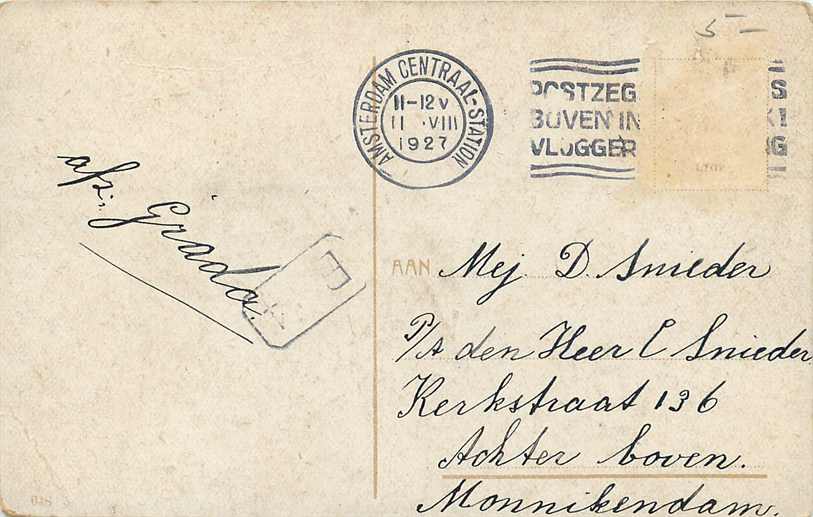 5 -
AMSTERDAM CENTRAAL-STATION
11-12V
11 VIII
1927
POSTZEG S
BOVEN IN K!
VLUGGER G
afz; Grada.
AAN Mej D. Snieder
P/A den Heer C Snieder
Kerkstraat 136
Achter boven.
Monnikendam.